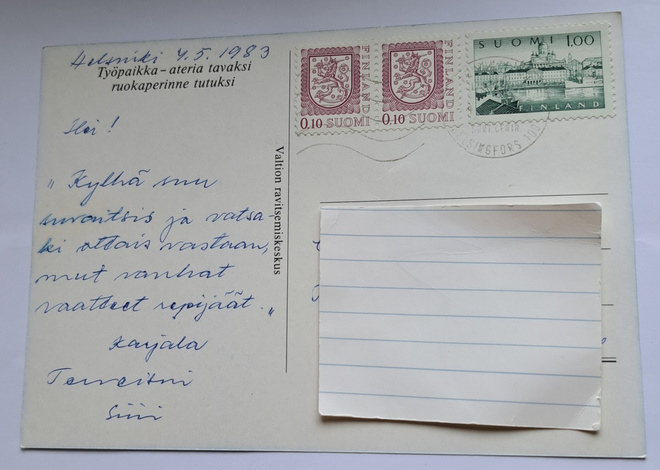 Helsinki 4.5.1983
Työpaikka-ateria tavaksi
ruokaperinne tutuksi
Hei!
"Kyllhä suu
suvaitsis ja vatsa-
ki ottais vastaan,
mut vanhat
vaatteet repijäät."
Karjala
Terveisin
Siiri
Valtion ravitsemiskeskus
0.10 SUOMI
FINLAND
0.10 SUOMI
FINLAND
SUOMI 1.00
FINLAND
HELSINGFORS 100